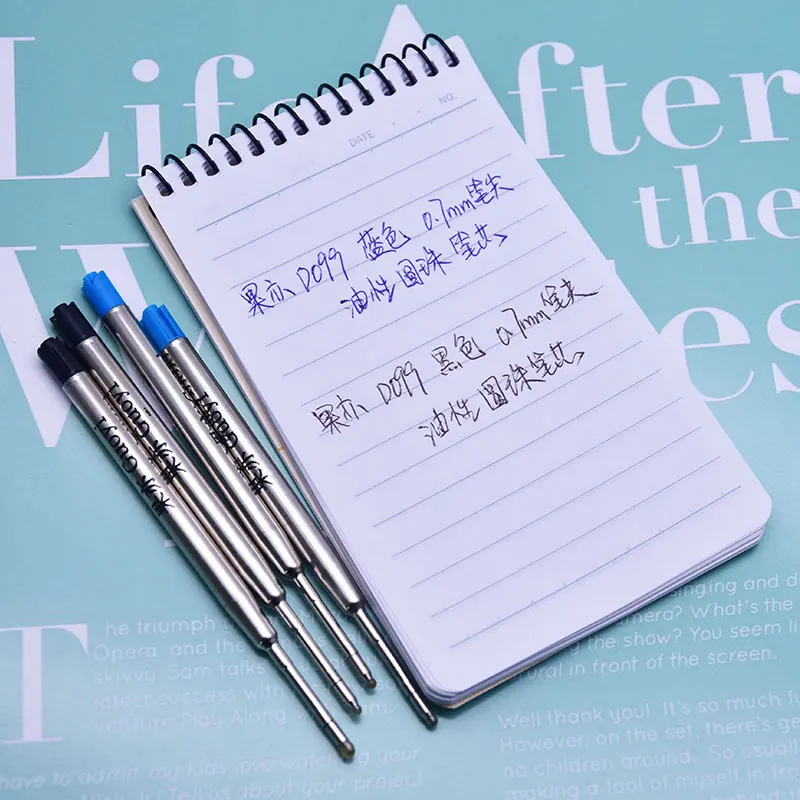 Life After
the
W es
DATE NO.
果亦 D099 蓝色 0.7mm笔尖
油性圆珠笔芯
果亦 D099 黑色 0.7mm笔尖
油性圆珠笔芯
果亦 Guoyi
果亦 Guoyi
果亦 Guoyi
The triumph
Opera and the
skivvy. Sam talks
latest success with
venture Play Along
have to admit my kids love watching your
Tell us about your project
singing and d
camera? What's the
the show? You seem li
tural in front of the screen.
Well thank you! It's so much fu
However, on the set, there's ge
no children around. So usual
making a fool of myself in fro